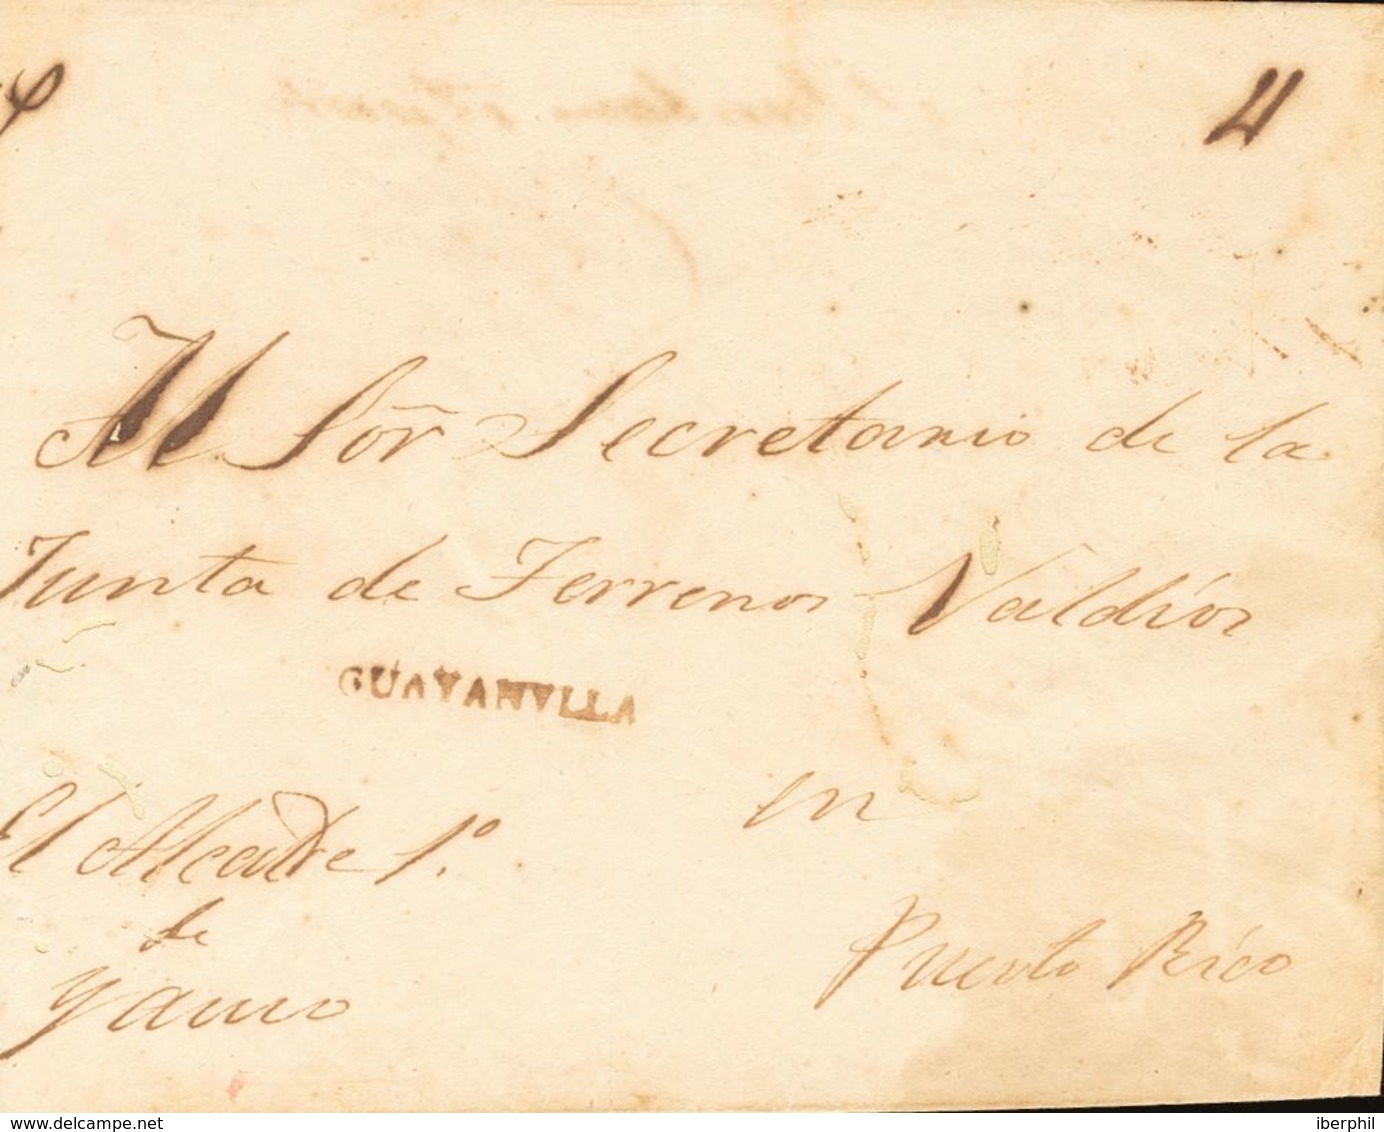 4
Al Sör Secretario de la
Junta de Terrenos Valdíos
GUAYANILLA
en
El Alcalde 1º.
de
Yauco
Puerto Rico
www.delcampe.net
iberphil